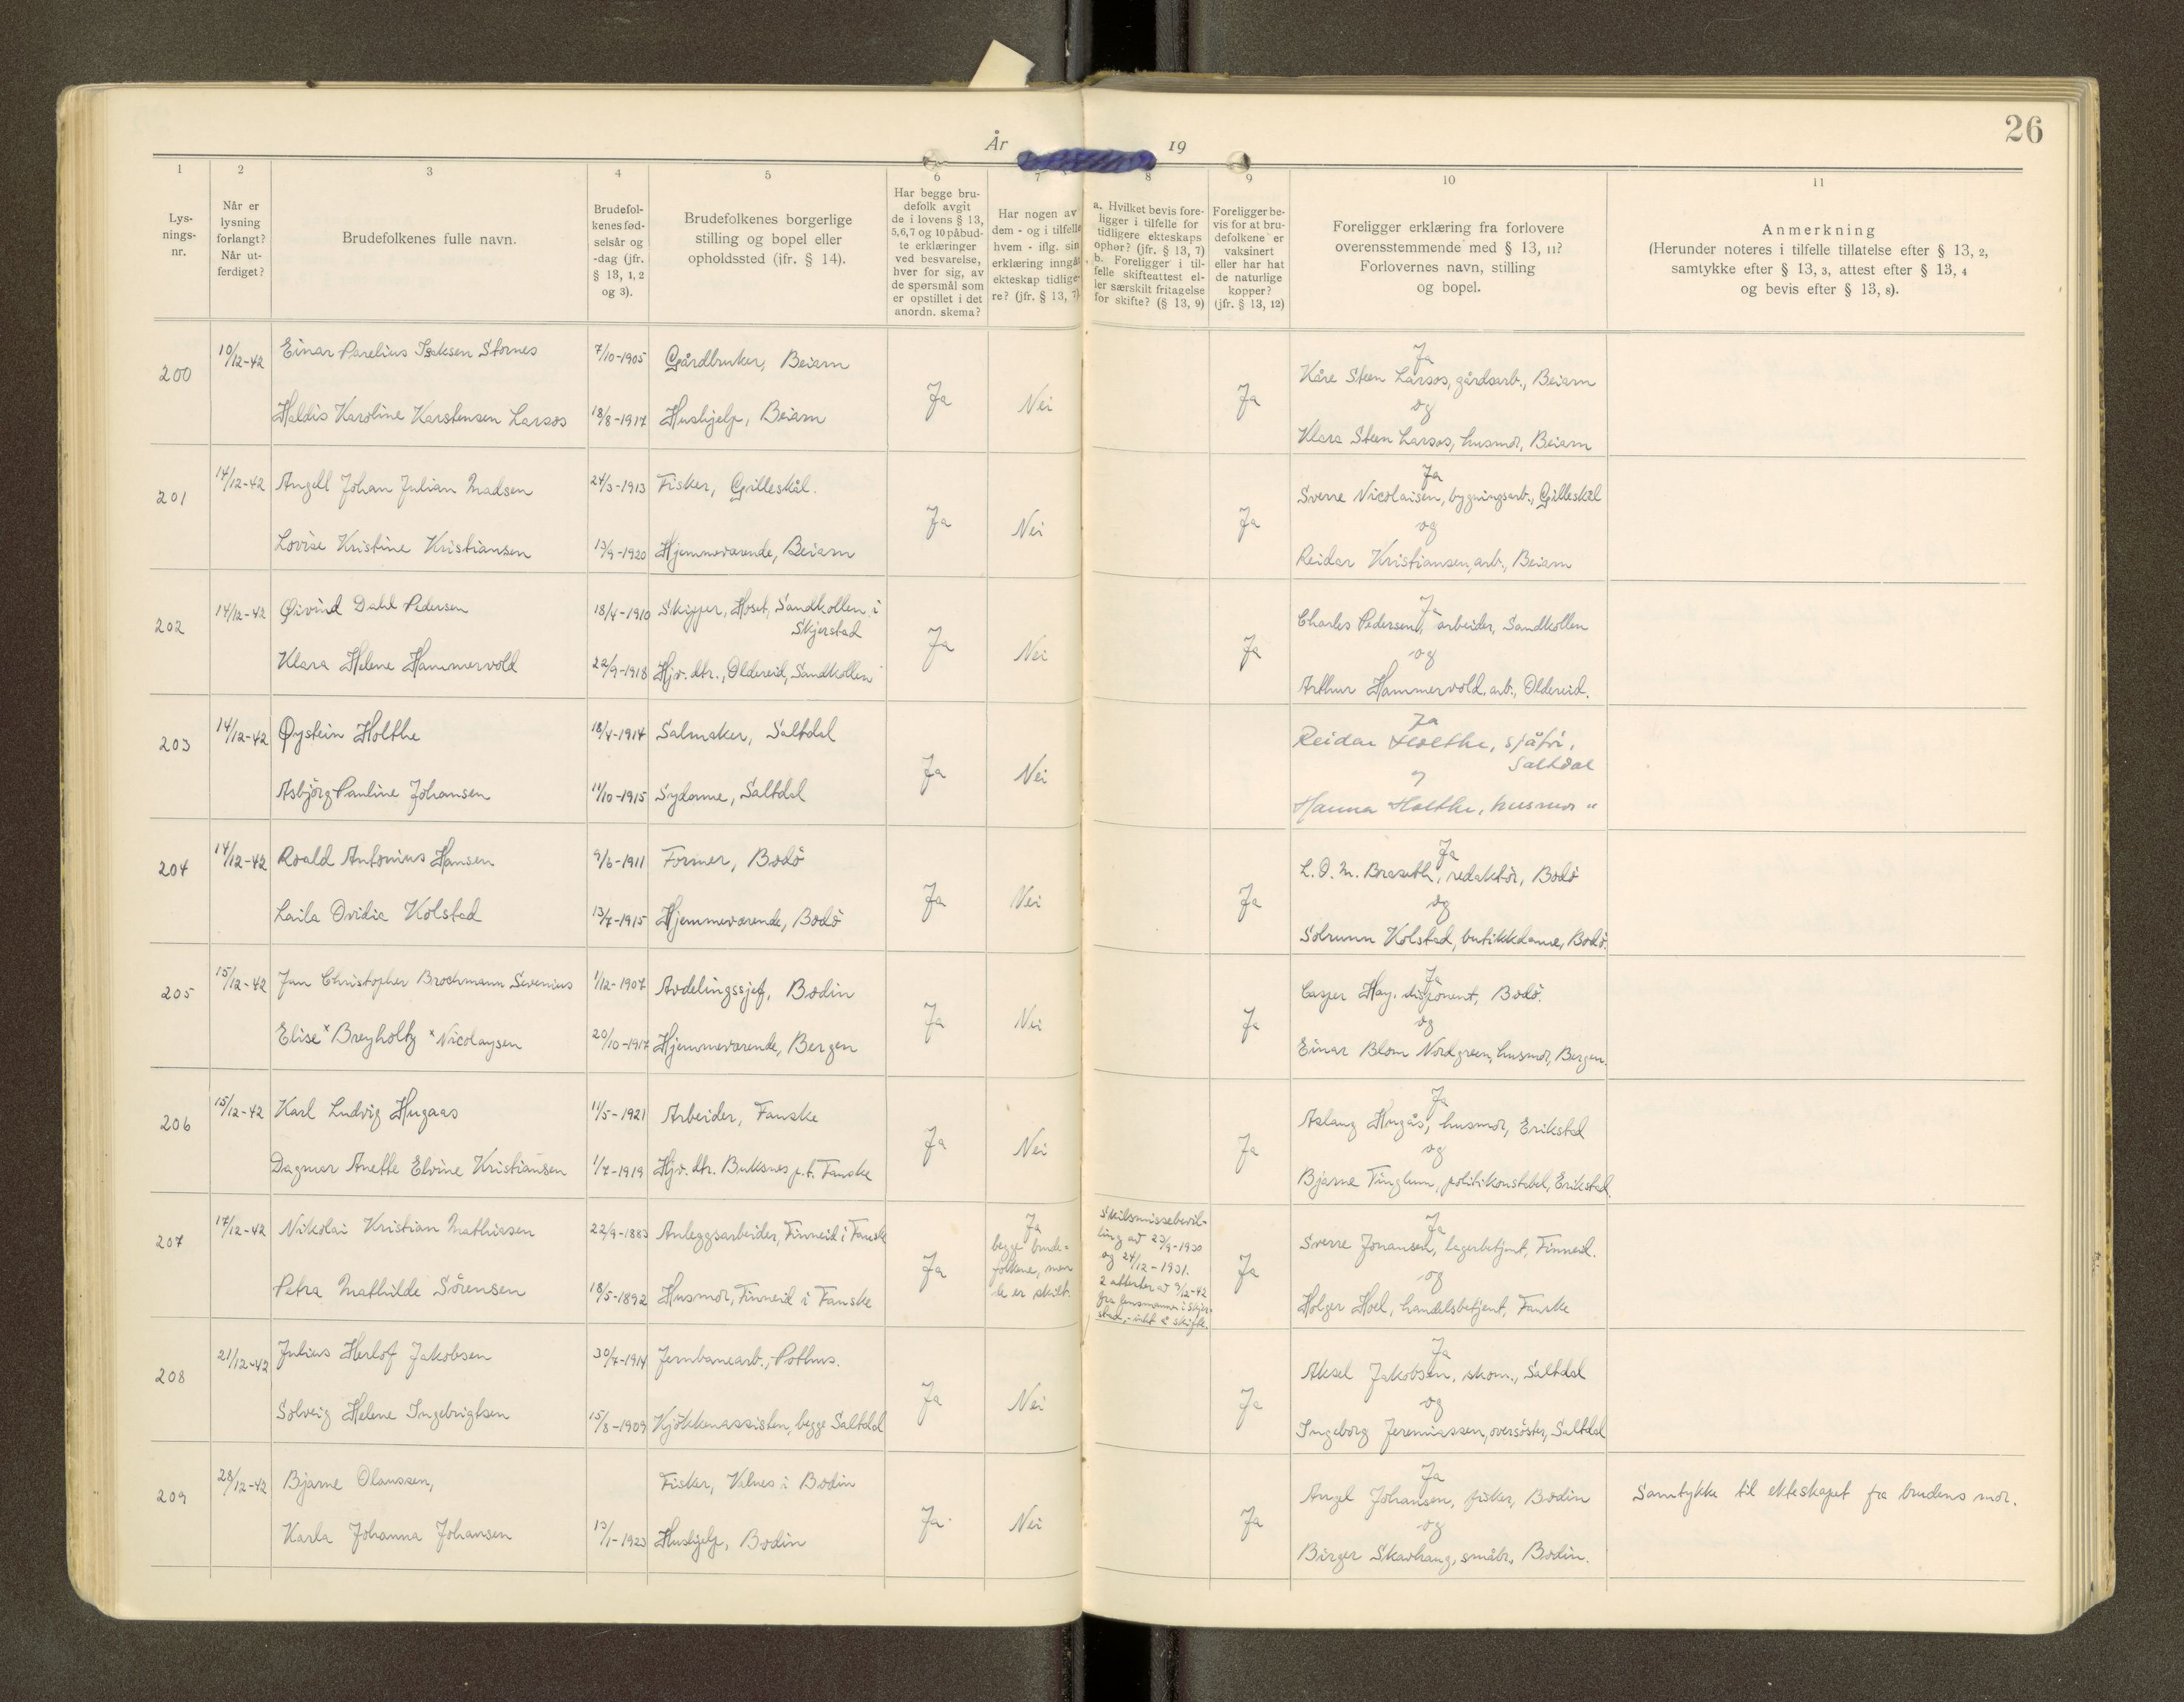 26
År 19
1 2 3 4 5 6 7 8 9 10 11
Lys-
nings-
nr.
Når er
lysning
forlangt?
Når ut-
ferdiget?
Brudefolkenes fulle navn.
Brudefol-
kenes fød-
selsår og
-dag (jfr.
§ 13, 1, 2
og 3).
Brudefolkenes borgerlige
stilling og bopel eller
opholdssted (ifr. § 14).
Har begge bru-
defolk avgit
de i lovens § 13,
5,6,7 og 10 påbud-
te erklæringer
ved besvarelse,
hver for sig, av
de spørsmål som
er opstillet i det
anordn. skema?
Har nogen av
dem - og i tilfelle
hvem - iflg. sin
erklæring inngåt
ekteskap tidlige-
re? (jfr. § 13, 7)
a. Hvilket bevis fore-
ligger i tilfelle for
tidligere ekteskaps
ophør? (jfr. § 13, 7)
b. Foreligger i til-
felle skifteattest el-
ler særskilt fritagelse
for skifte? (§ 13, 9)
Foreligger be-
vis for at bru-
defolkene er
vaksinert
eller har hat
de naturlige
kopper?
(jfr. § 13, 12)
Foreligger erklæring fra forlovere
overensstemmende med § 13, 11?
Forlovernes navn, stilling
og bopel.
Anmerkning
(Herunder noteres i tilfelle tillatelse efter § 13, 2,
samtykke efter § 13, 3, attest efter § 13, 4
og bevis efter § 13, 8).
200
10/12-42
Einar Parelius Isaksen Stornes
7/10-1905
Gårdbruker, Beiarn
Haldis Karoline Karstensen Larsos
18/8-1917
Hushjelp, Beiarn
Ja
Nei
Ja
Ja
Kåre Steen Larsos, gårdsarb., Beiarn
og
Klara Steen Larsos, husmor, Beiarn
201
14/12-42
Angell Johan Julian Madsen
24/3-1913
Fisker, Gilleskål.
Lovise Kristine Kristiansen
13/9-1920
Hjemmeværende, Beiarn
Ja
Nei
Ja
Ja
Sverre Nicolaisen, bygningsarb., Gilleskål
og
Reidar Kristiansen, arb., Beiarn
202
14/12-42
Øivind Dahl Pedersen
18/4-1910
Skipper, Hoset, Sandkollen i
Skjerstad
Klara Helene Hammervold
22/9-1918
Hjv. dtr., Oldereid, Sandkollen
Ja
Nei
Ja
Ja
Charles Pedersen, arbeider, Sandkollen
og
Arthur Hammervold, arb., Oldereid.
203
14/12-42
Øystein Holthe
18/4-1914
Salmaker, Saltdal
Asbjørg Pauline Johansen
11/10-1915
Sydame, Saltdal
Ja
Nei
Ja
Reidar Holthe, sjåfør,
Saltdal
Hanna Holthe, husmor "
204
14/12-42
Roald Antonius Hansen
9/6-1911
Former, Bodö
Laila Ovidia Kolstad
13/7-1915
Hjemmeværende, Bodö
Ja
Nei
Ja
Ja
L. O. M. Braseth, redaktör, Bodö
og
Solrunn Kolstad, butikkdame, Bodö.
205
15/12-42
Jan Christopher Brochmann Sivenius
1/12-1907
Avdelingssjef, Bodin
Elise x Breyholtz x Nicolaysen
20/10-1917
Hjemmeværende, Bergen
Ja
Nei
Ja
Ja
Casper Hay. disponent, Bodö.
og
Einar Blom Nordgreen, husmor, Bergen.
206
15/12-42
Karl Ludvig Hugaas
11/5-1921
Arbeider, Fauske
Dagmar Anette Elvine Kristiansen
1/7-1919
Hjv. dtr. Buksnes p.t. Fauske
Ja
Nei
Ja
Ja
Aslaug Hugås, husmor, Erikstad
og
Bjarne Tinglum, politikonstabel, Erikstad.
207
17/12-42
Nikolai Kristian Mathiasen
22/9-1883
Anleggsarbeider, Finneid i Fauske
Petra Mathilde Sörensen
18/5-1892
Husmor, Finneid i Fauske
Ja
Ja
begge brude-
folkene, men
de er skilt.
Skilsmissebevil-
ling av 23/9-1930
og 24/12-1931.
2 attester av 9/12-42
fra lensmannen i Skjer-
stad,- intet å skifte.
Ja
Ja
Sverre Johansen, lagerbetjent, Finneid.
og
Holger Hoel, handelsbetjent, Fauske
208
21/12-42
Julius Herlof Jakobsen
30/7-1914
Jernbanearb., Pothus.
Solveig Helene Ingebrigtsen
15/8-1909
Kjökkenassistent, begge Saltdal
Ja
Nei
Ja
Ja
Aksel Jakobsen, skom., Saltdal
og
Ingeborg Jeremiassen, oversöster, Saltdal
209
28/12-42
Bjarne Olaussen,
Fisker, Valnes i Bodin
Karla Johanna Johansen
13/1-1923
Hushjelp, Bodin
Ja
Nei
Ja
Ja
Angel Johansen, fisker, Bodin
og
Birger Skavhaug, småbr., Bodin.
Samtykke til ekteskapet fra brudens mor.